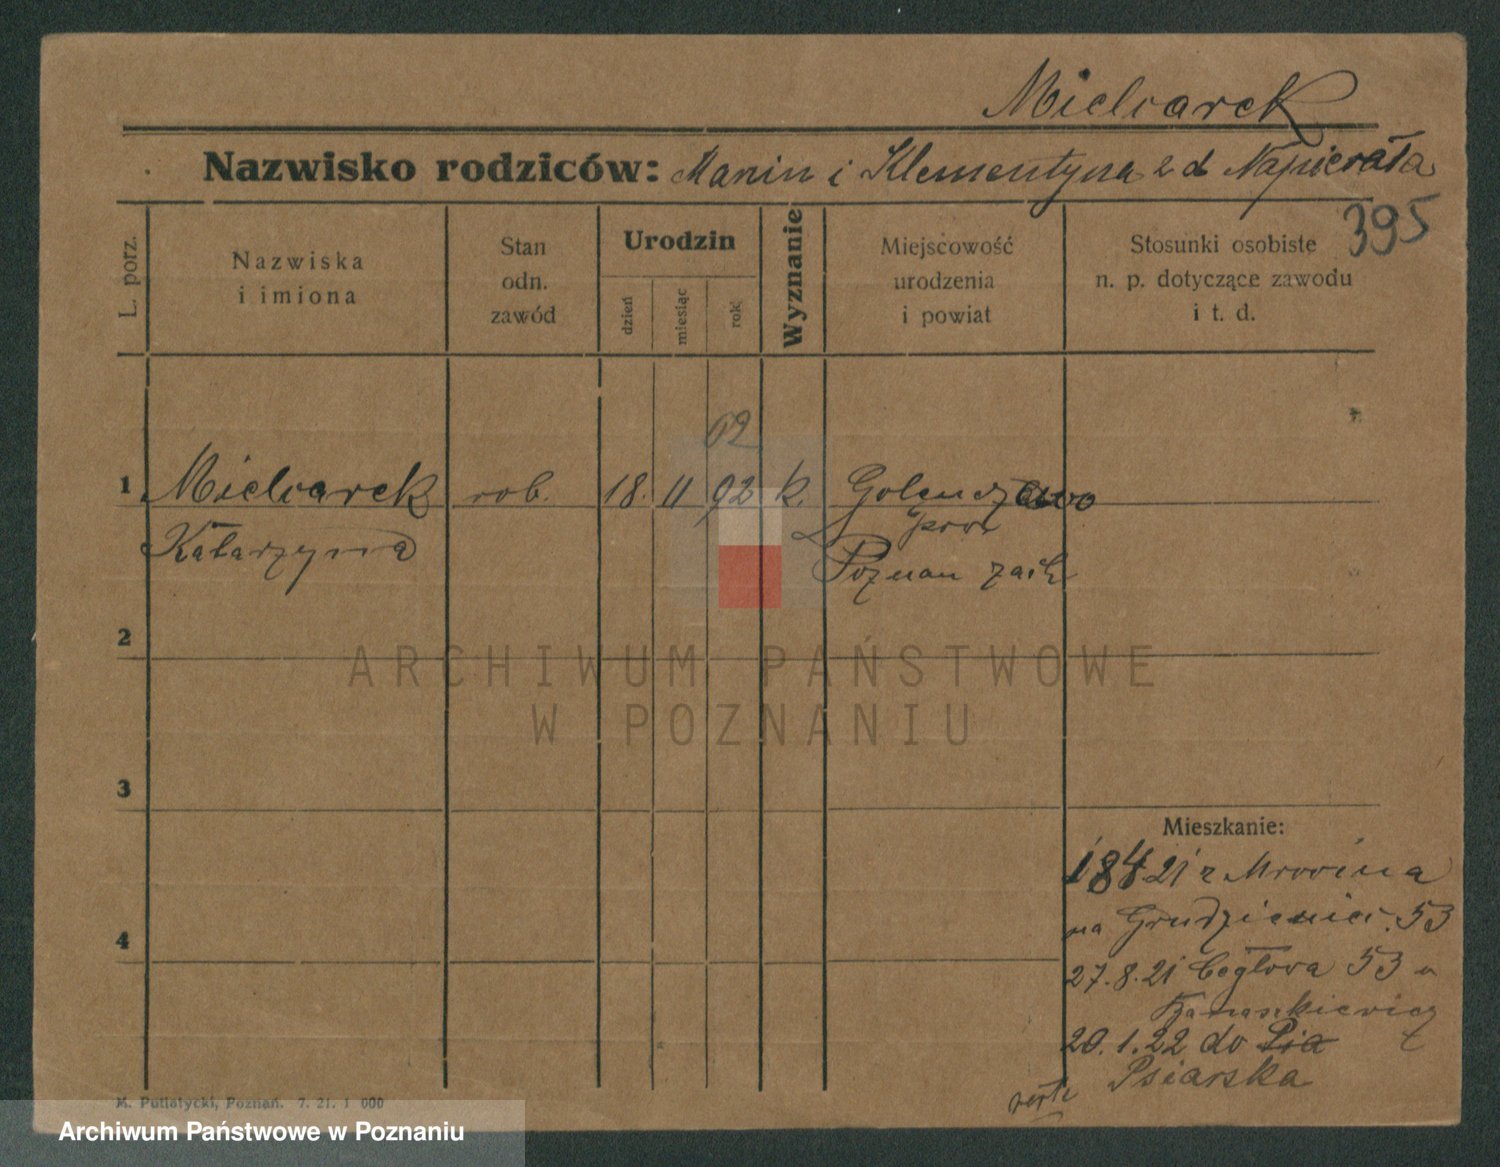 Mielcarek
Nazwisko rodziców: Marcin i Klementyna z d Napierała
395
L. porz.
Nazwiska i imiona
Stan odn. zawód
Urodzin
dzień
miesiąc
rok
Wyznanie
Miejscowość urodzenia i powiat
Stosunki osobiste n. p. dotyczące zawodu i t. d.
92
1 Mielcarek rob. 18. 11 92 k. Golenczewo
Katarzyna pow
Poznan zach
2
ARCHIWUM PAŃSTWOWE
W POZNANIU
3
Mieszkanie:
18 4 21 z Mrowina
4
na Grudzieniec. 53
27.8.21 Cegłowa 53 u
20.1.22 do Pia
Psiarska
verte
M. Putiatycki, Poznań. 7. 21. 1 000
Archiwum Państwowe w Poznaniu